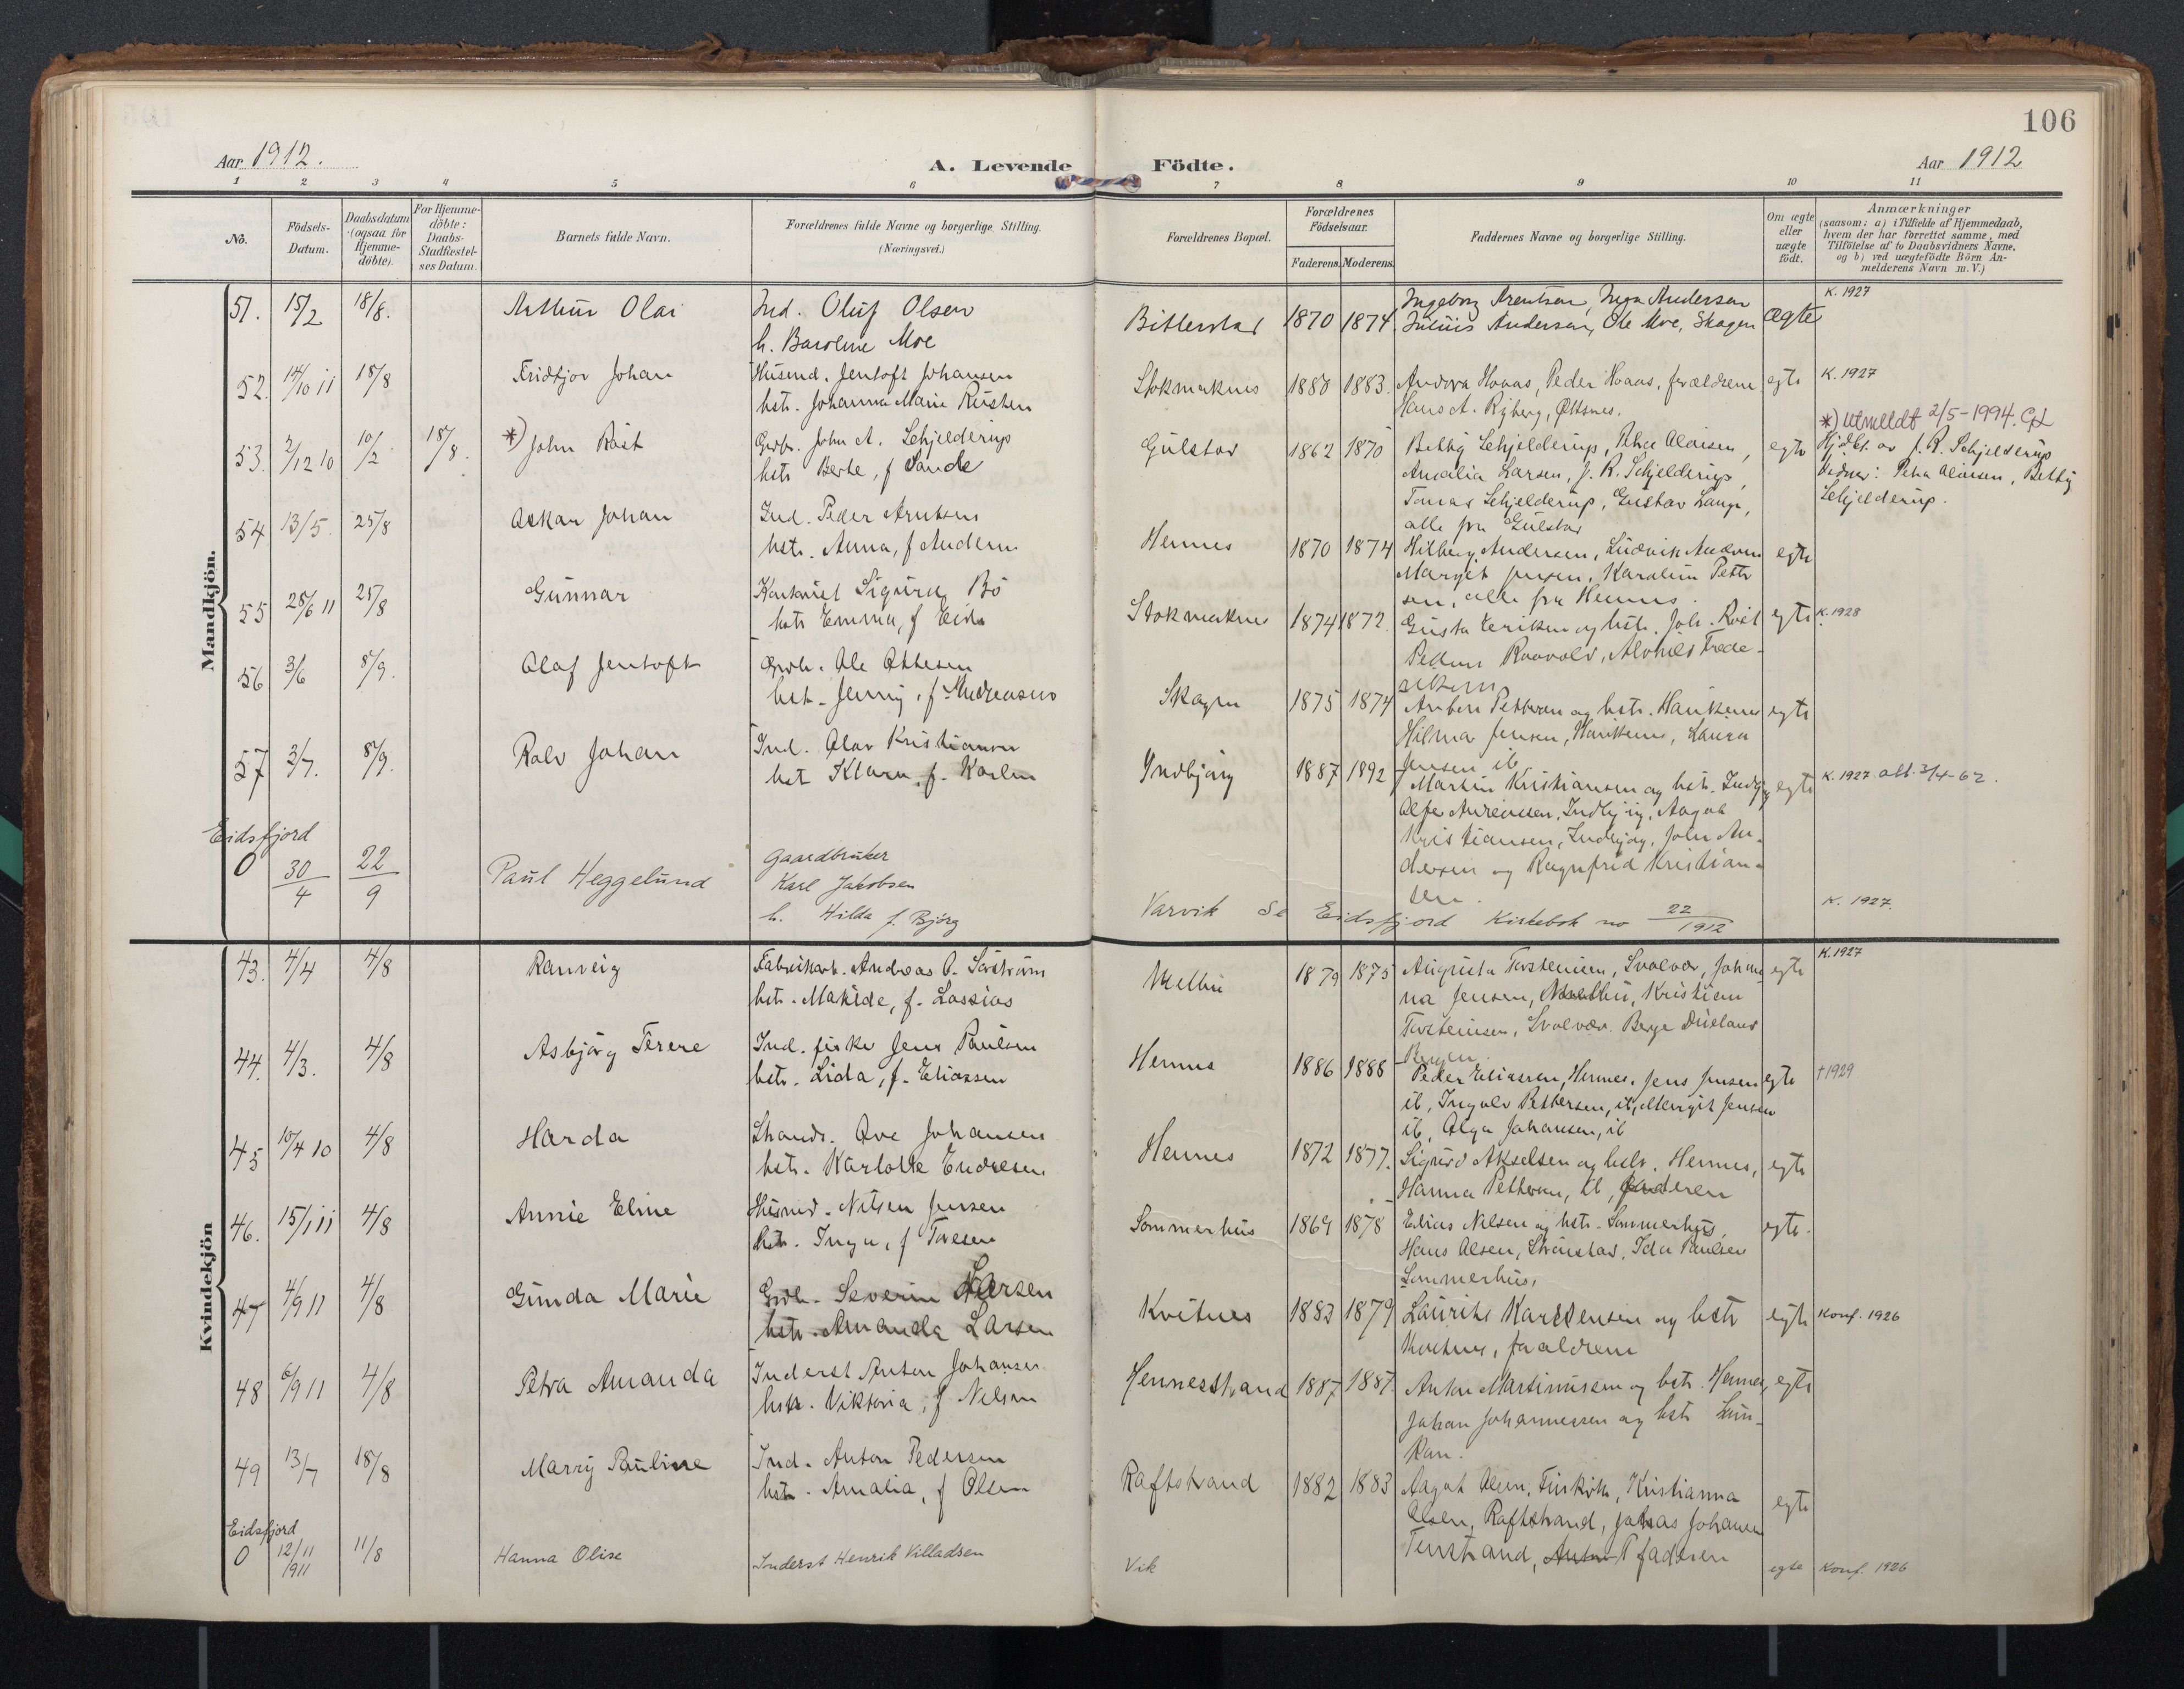 106
Aar 1912.
A. Levende Födte.
Aar 1912
1 2 3 4 5 6 7 8 9 10 11
No.
Födsels-
Datum.
Daabsdatum
(ogsaa for
Hjemme-
döbte).
For Hjemme-
döbte:
Daabs-
Stadfæstel-
ses Datum.
Barnets fulde Navn.
Forældrenes fulde Navne og borgerlige Stilling.
(Næringsvei.)
Forældrenes Bopæl.
Forældrenes
Födselsaar.
Faderens. Moderens.
Faddernes Navne og borgerlige Stilling.
Om ægte
eller
uægte
födt.
Anmærkninger
(saasom: a) i Tilfælde af Hjemmedaab,
hvem der har forrettet samme, med
Tilföielse af to Daabsvidners Navne,
og b) ved uægtefödte Börn An-
melderens Navn m. V.)
Mandkjön.
51. 15/2 18/8. Arthur Olai
Ind. Oluf Olsen
h. Baroline Moe
Bitterstad 1870 1874
Ingeborg Arentsen, Inga Andersen
Julius Andersen, Ole Moe, Skagen
Ægte
K. 1927
52. 14/10 11 18/8 Fridtjov Johan
Husmd. Jentoft Johansen
hstr. Johanna Marie
Stokmaknes 1880 1883.
Andora Hovas, Peder Hovas, forældrene
Hans A. Ryberg,
egte
K. 1927
53. 2/12 10 10/2 18/8. *) John Røst
Gbr. John A. Schjelderup
hstr Berte, f Sande
Gulstad 1862 1870
Betty Schjelderup, Petra Aloisen,
Amalia Larsen, J. R. Schjelderup,
Tomas Schjelderup, Gustav Lange,
alle fra Gulstad
egte
*) Utmeldt 2/5-1994.
Hjdbt. av J. R. Schjelderup
Vidner: Petra Aloisen, Betty
Schjelderup.
54 13/5 25/8 Oskar Johan
Ind. Peder Arntsen
hstr. Anna, f Andersn
Hennes 1870 1874
Andersen, Ludvik
Margit Jensen, Karoline Petter
sen, alle fra Hennes.
egte
55 28/6 11 25/8 Gunnar
Sigurd Bö
hstr Emma, f Eide
Stokmaknes 1874 1872.
Gusta Eriksen og hstr. Joh. Røst
Roavolv, Alvhild Frede-
riksen
egte
K. 1928
56 3/6 8/9. Olaf Jentoft
Grdb. Ole Ottesen
hst. Jenny, f. Andreassen
Skagen 1875 1874
Pettersen og hstr.
Hilma Jensen, Laura
Jensen ib
egte
57 2/7. 8/9. Rolv Johan
Ind. Olav Kristiansen
hst Klara, f. Karlsen
Indbjörg 1887 1892
Martin Kristiansen og hstr. Indbj
Alfa Indbjörg, Aagot
Kristiansen, Indbjörg, John An-
dersen og Ragnfrid Kristian-
sen.
egte
K. 1927. att. 3/4-62.
Eidsfjord
0 30/4 22/9 Paul Heggelund
Gaardbruker
Karl Jakobsen
h. Hilda f. Bjørg
Varvik Se Eidsfjord Kirkebok no 22/1912
K. 1927.
Kvindekjön
43. 4/4 4/8 Ranveig
Fabrikarb. Andreas
hstr. Makrde, f. Lossius
Melbu 1879 1875
Augusta Torsteinsen, Svolvær, Johan
na Jensen, Melbu, Kristian
Torsteinsen, Svolvær. Berge
Bergen.
egte
K. 1927
44. 4/3. 4/8 Asbjørg Terese
Ind. fisker Jens Paulsen
hstr. Lida, f. Eliassen
Hennes 1886 1888
Peder Eliassen, Hennes, Jens Jensen
ib, Ingolv Pettersen, ib, Margit Jensen
ib, Olga Johansen, ib
egte
† 1929
45 10/4 10 4/8 Harda
Strands. Ove Johansen
hstr. Karlotte Endresen
Hennes 1872 1877.
Sigurd Akselsen og hstr. Hennes,
Hanna Pettersen, ib, faderen
egte
46. 15/1 11 4/8 Annie Eline
Husmd. Nilsen Jensen
hstr. Inga, f Toresen
Sommerhus 1869 1878
Edias Nilsen og hstr. Sommerhus,
Hans Olsen, Ida Paulsen
Sommerhus.
egte.
47 4/9 11 4/8 Gunda Marie
Grdb. Severin Larsen
hstr. Amanda Larsen
Kvitnes 1883 1879
Laurits Karstensen og hstr
Kvitnes, forældrene
egte
Konf. 1926
48 6/9 11 4/8 Petra Amanda
Inderst Anton Johansen
hstr. Viktoria, f Nilsen
Hennesstrand 1887 1887.
Anton Martinussen og hstr. Hennes,
Johan Johannessen og hstr
egte
49 13/7 18/8 Marry Pauline
Ind. Anton Pedersen
hstr. Amalia, f Olsen
Raftstrand 1882 1883
Aagot Olsen, Kristianna
Olsen, Raftstrand, Johansen
faderen
egte
Eidsfjord
0 12/11 1911 11/8 Hanna Olise
Inderst Henrik Villadsen
Vik
egte
Konf. 1926